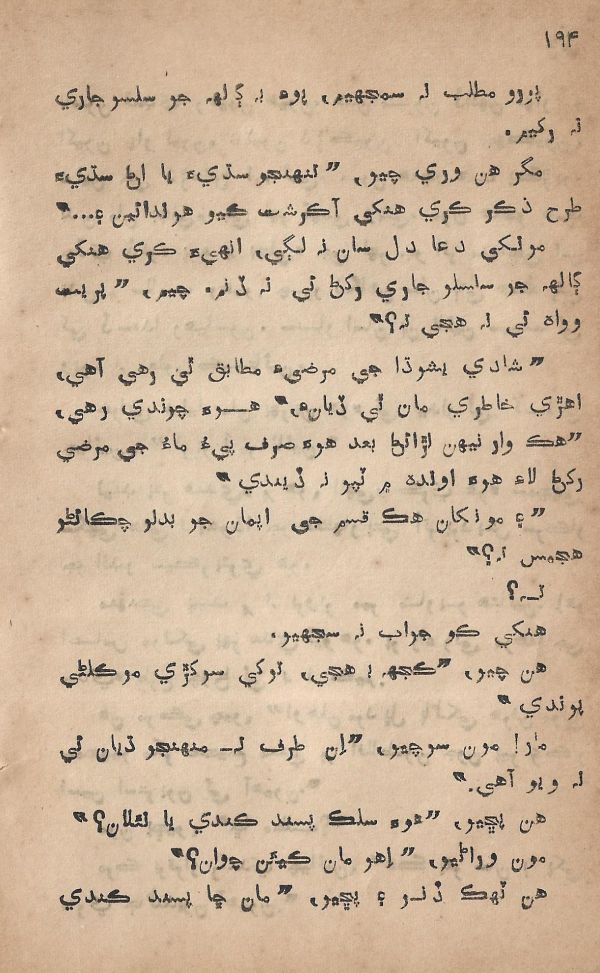 ۱۹۴
پورو مطلب نہ سمجھيم, پوءِ بہ ڳالھہ جو سلسو جاري
نہ رکيم.
مگر هن وري چيو, ”تنهنجو سڌيءَ يا اڻ سڌيءَ
طرح ذڪر ڪري هنکي آڪرشت ڪيو هوندائين ۽...“
مونکي دعا دل سان نہ لڳي, انهيءَ ڪري هنکي
ڳالھہ جو سلسلو جاري رکڻ ئي نہ ڏنم. چيم, ”پريت
وواهہ ئي نہ هجي نہ؟“
”شادي يشوڌا جي مرضيءَ مطابق ٿي رهي آهي,
اهڙي خاطري مان ٿي ڏيان۔“ هوءَ چوندي رهي,
”هڪ وار نيهن لڙائڻ بعد هوءَ صرف پيءُ ماءُ جي مرضي
رکڻ لاءِ هوءَ اوندهہ ۾ ٽپو نہ ڏيندي“
”۽ مونکان هڪ قسم جي اپمان جو بدلو چڪائڻو
هجيس تہ؟“
تہ؟
هنکي ڪو جواب نہ سجهيو.
هن چيو, ”ڪجهہ بہ هجي, توکي سوکڙي موڪلڻي
پوندي“
مار! مون سوچيو, ”اِن طرف تہ منهنجو ڌيان ئي
نہ ويو آهي.“
هن پڇيو, ”هوءَ سلڪ پسند ڪندي يا نئلان؟“
مون وراڻيو, ”اِهو مان ڪيئن چوان؟“
هن ٽهڪ ڏنو ۽ پڇيو, ”مان ڇا پسند ڪندي